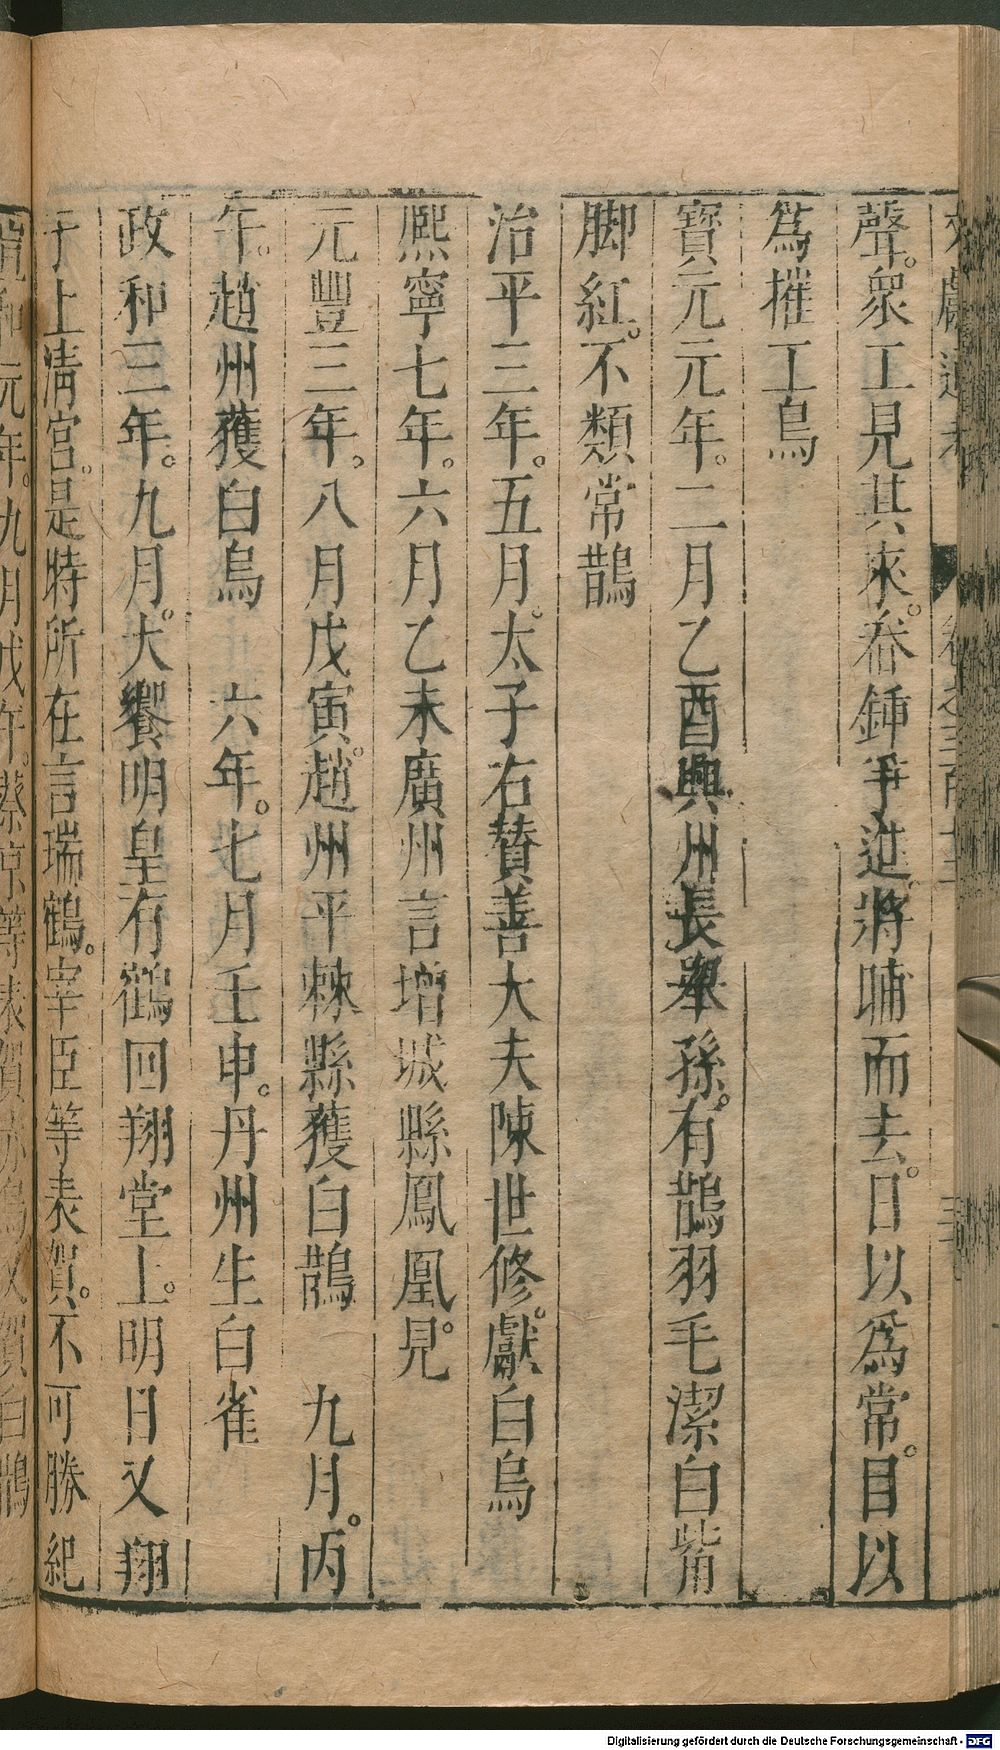 聲。衆工見其來。畚鍤爭進。將晡而去。日以爲常。目以
爲摧工鳥
寶元元年。二月乙酉興州長舉孫。有鵲羽毛潔白觜
脚紅。不類常鵲
治平三年。五月。太子右贊善大夫陳世修。獻白烏
熈寧七年。六月乙未廣州言增城縣鳳凰見。
元豐三年。八月戊寅。趙州平棘縣獲白鵲　九月。丙
午。趙州獲白烏　六年。七月壬申。丹州生白雀
政和三年。九月。大饗明皇有鶴回翔堂上。明日又翔
于上淸宮。是時所在言瑞鶴。宰臣等表賀。不可勝紀
和元年。九月戊午。蔡京等表賀赤烏又賀白鵲
Digitalisierung gefördert durch die Deutsche Forschungsgemeinschaft - DFG